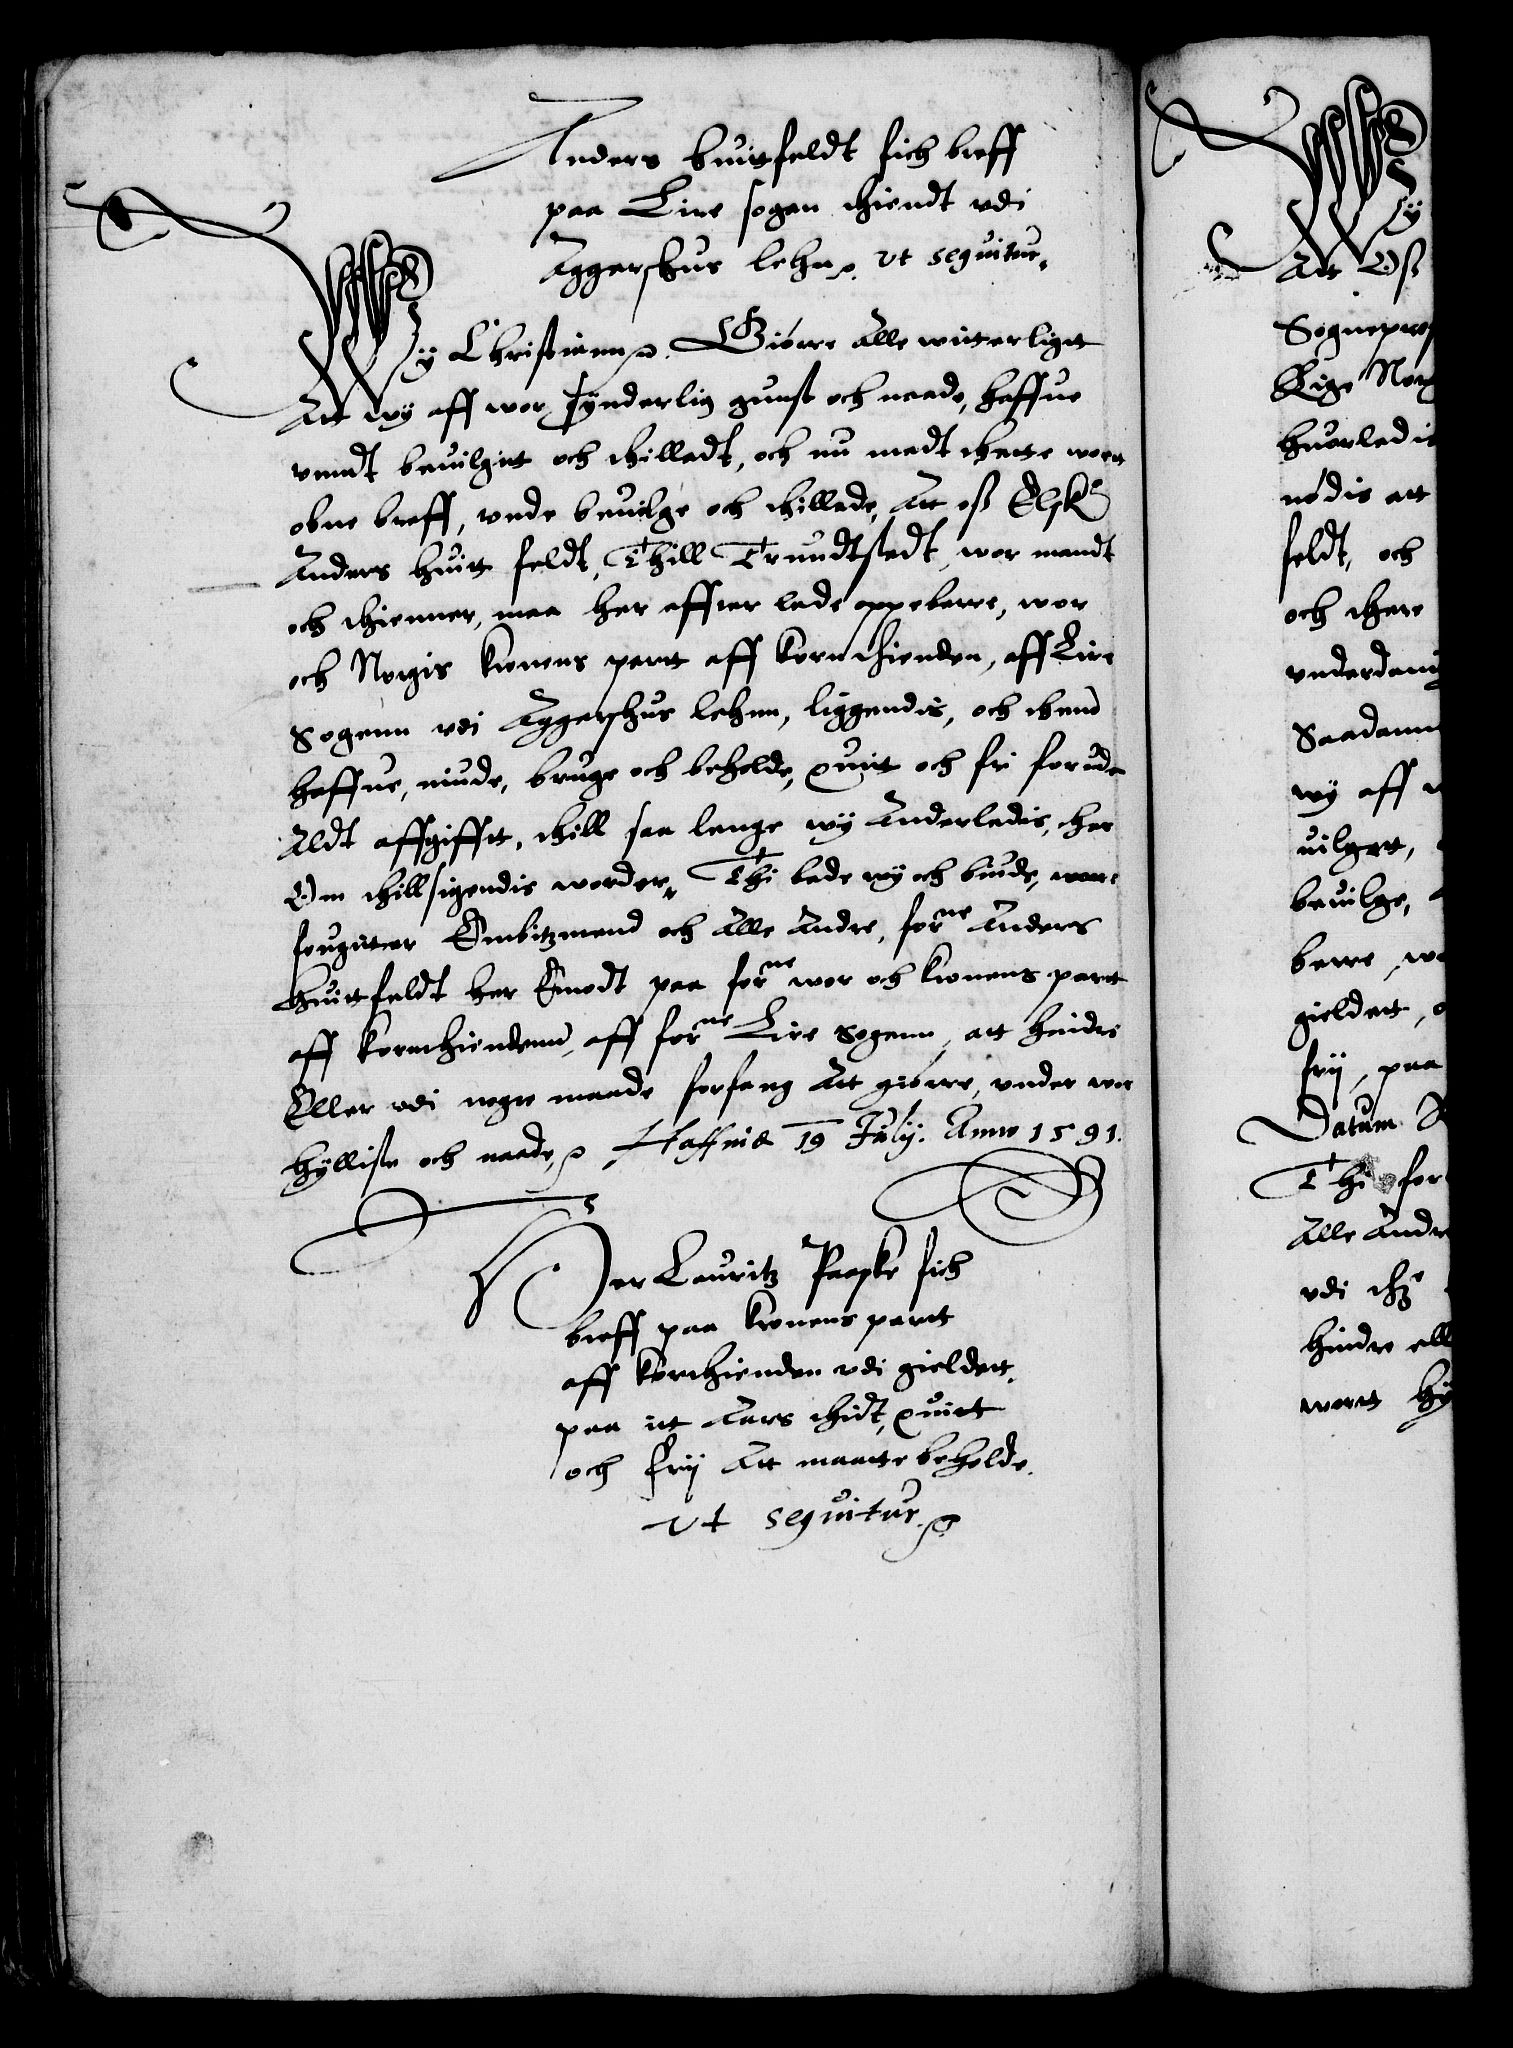 Anders huitfeldt fich breff
paa Lire sogen thiendt udi
Aggershus lehn ut seguitur
Wy Christiann Giörre alle witterligt
Att wy aff wor synderlig gunst och naade, haffue
undt beuilgit och thilladt, och nu medt thette wort
obne breff, unde beuilge och thillade, Att oss Elsk
Anders huitt feldt, Thill Trundtstadt, wor mandt
och thienner, maa her effter lade oppeberre, wor
och Norgis kronens part aff korn thienden, aff Lire
sogenn udi Aggershus lehnn, liggendis, och thend
haffue, niude, bruge och beholde, quit och fri foruden
Aldt affgifft, thill saa lenge wy Anderledis, ther
Om thillsigendis worder, Thi bede wy och biude, wore
fougitter Embitzmend och Alle Andre, forne Anders
Huitfeldt her Emodt paa forne wor och kronens part
aff kornthiendenn, aff forne Lire sogenn, att hindre
Eller udi nogre maade forfang Att giörre, under wor
hylliste och naade, Haffniæ 19 July. Anno 1591.
Her Lauritz Paaske fich
breff paa kronens part
aff kornthienden udi gieldett.
paa itt Aars thidt, quitt
och frij Att maatte beholde.
ut seguitur
Wy
Att Oss
Sognepres
Rige Norg
huorledis
nödis att
feldt, och
och there
underdanig
Saadann
wy aff w
uilgett,
beuilge,
berre, wo
gieldett, o
frij, paa
Datum
Thi for
Alle Andre
udi
hindre ell
wortt hy